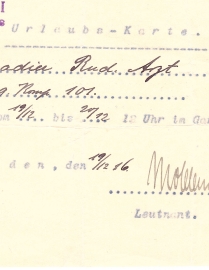 Urlaubs-Karte.
adier Rud. Arzt
Komp 101.
19/12. bis 20/12 12 Uhr in Ga
den, den 19/12 16
Leutnant.